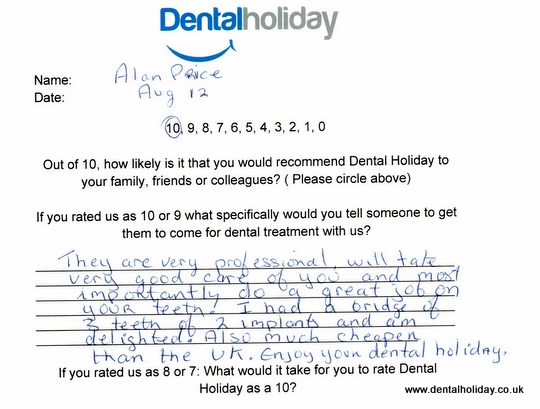 Dentalholiday
Name: Alan Price
Date: Aug 12
10, 9, 8, 7, 6, 5, 4, 3, 2, 1, 0
Out of 10, how likely is it that you would recommend Dental Holiday to
your family, friends or colleagues? ( Please circle above)
If you rated us as 10 or 9 what specifically would you tell someone to get
them to come for dental treatment with us?
They are very professional, will take
very good care of you and most
importantly do a great job on
your teeth. I had a bridge of
3 teeth of 2 implants and am
delighted. Also much cheaper
than the UK. Enjoy your dental holiday.
If you rated us as 8 or 7: What would it take for you to rate Dental
Holiday as a 10?
www.dentalholiday.co.uk